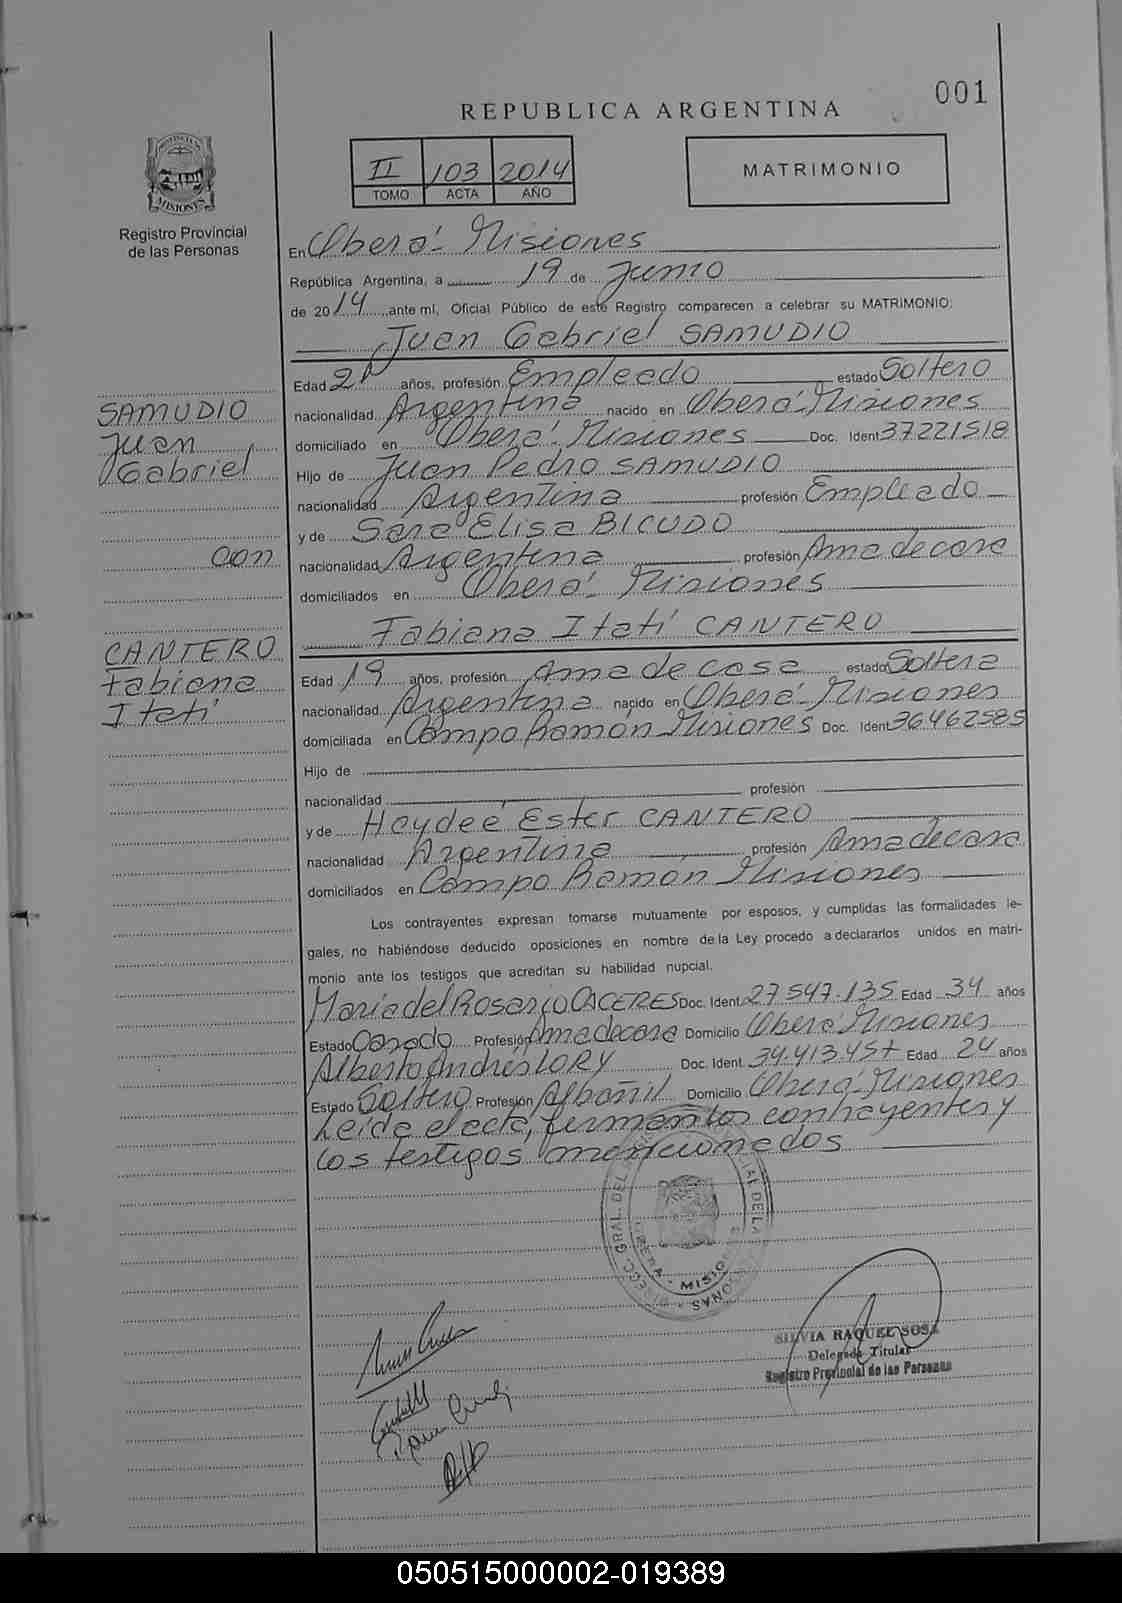 001
REPUBLICA ARGENTINA
II 103 2014
TOMO ACTA AÑO
MATRIMONIO
PROVINCIA DE
MISIONES
Registro Provincial
de las Personas
En Oberá - Misiones
República Argentina, a 19 de Junio
de 2014 ante mí, Oficial Público de este Registro comparecen a celebrar su MATRIMONIO:
Juan Gabriel SAMUDIO
Edad 21 años, profesión Empleado estado Soltero
nacionalidad Argentina nacido en Oberá - Misiones
domiciliado en Oberá - Misiones Doc. Ident 37221518
Hijo de Juan Pedro SAMUDIO
nacionalidad Argentina profesión Empleado
y de Sara Elisa BICUDO
nacionalidad Argentina profesión Ama de casa
domiciliados en Oberá - Misiones
SAMUDIO
Juan
Gabriel
con
CANTERO
Fabiana
Itatí
Fabiana Itatí CANTERO
Edad 19 años, profesión Ama de casa estado Soltera
nacionalidad Argentina nacido en Oberá - Misiones
domiciliada en Campo Ramón Misiones Doc. Ident 36462585
Hijo de
nacionalidad profesión
y de Haydeé Ester CANTERO
nacionalidad Argentina profesión Ama de casa
domiciliados en Campo Ramón Misiones
Los contrayentes expresan tomarse mutuamente por esposos, y cumplidas las formalidades le-
gales, no habiéndose deducido oposiciones en nombre de la Ley procedo a declararlos unidos en matri-
monio ante los testigos que acreditan su habilidad nupcial.
María del Rosario CACERES Doc. Ident. 27547.135 Edad 34 años
Estado Casado Profesión Ama de casa Domicilio Oberá Misiones
Alberto Andrés LORY Doc. Ident. 34.413.457 Edad 24 años
Estado Soltero Profesión Albañil Domicilio Oberá - Misiones
Leída el acta, firman los contrayentes y
los testigos mencionados
OBERA - MISIONES
SILVIA RAQUEL SOSA
Delegada Titular
Registro Provincial de las Personas
050515000002-019389